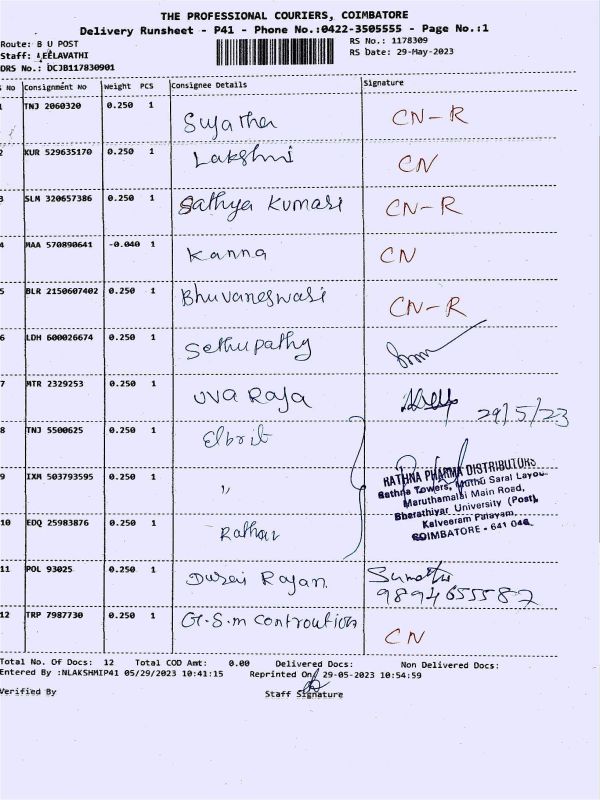 THE PROFESSIONAL COURIERS, COIMBATORE
Delivery Runsheet - P41 - Phone No.:0422-3505555 - Page No.:1
Route: B U POST
RS No.: 1178309
Staff: LEELAVATHI
RS Date: 29-May-2023
DRS No.: DCJB117830901
No Consignment No Weight PCS Consignee Details Signature
1 TNJ 2060320 0.250 1 Sujatha CN-R
2 KUR 529635170 0.250 1 Lakshmi CN
3 SLM 320657386 0.250 1 Sathya Kumari CN-R
4 MAA 570890641 -0.040 1 Kanna CN
5 BLR 2150607402 0.250 1 Bhuvaneswari CN-R
6 LDH 600026674 0.250 1 Sethupathy
7 MTR 2329253 0.250 1 UVA Raja 29/5/23
8 TNJ 5500625 0.250 1 Elbrit
9 IXM 503793595 0.250 1 "
10 EDQ 25983876 0.250 1 Rathna
RATHNA PHARMA DISTRIBUTORS
Rathna Towers, Muthu Saral Layou
Maruthamalai Main Road,
Bharathiyar University (Post),
Kalveeram Palayam,
COIMBATORE - 641 046.
11 POL 93025 0.250 1 Durai Rajan Sumathi
9894655587
12 TRP 7987730 0.250 1 G.S.m controution CN
Total No. Of Docs: 12 Total COD Amt: 0.00 Delivered Docs: Non Delivered Docs:
Entered By :NLAKSHMIP41 05/29/2023 10:41:15 Reprinted On 29-05-2023 10:54:59
Verified By Staff Signature